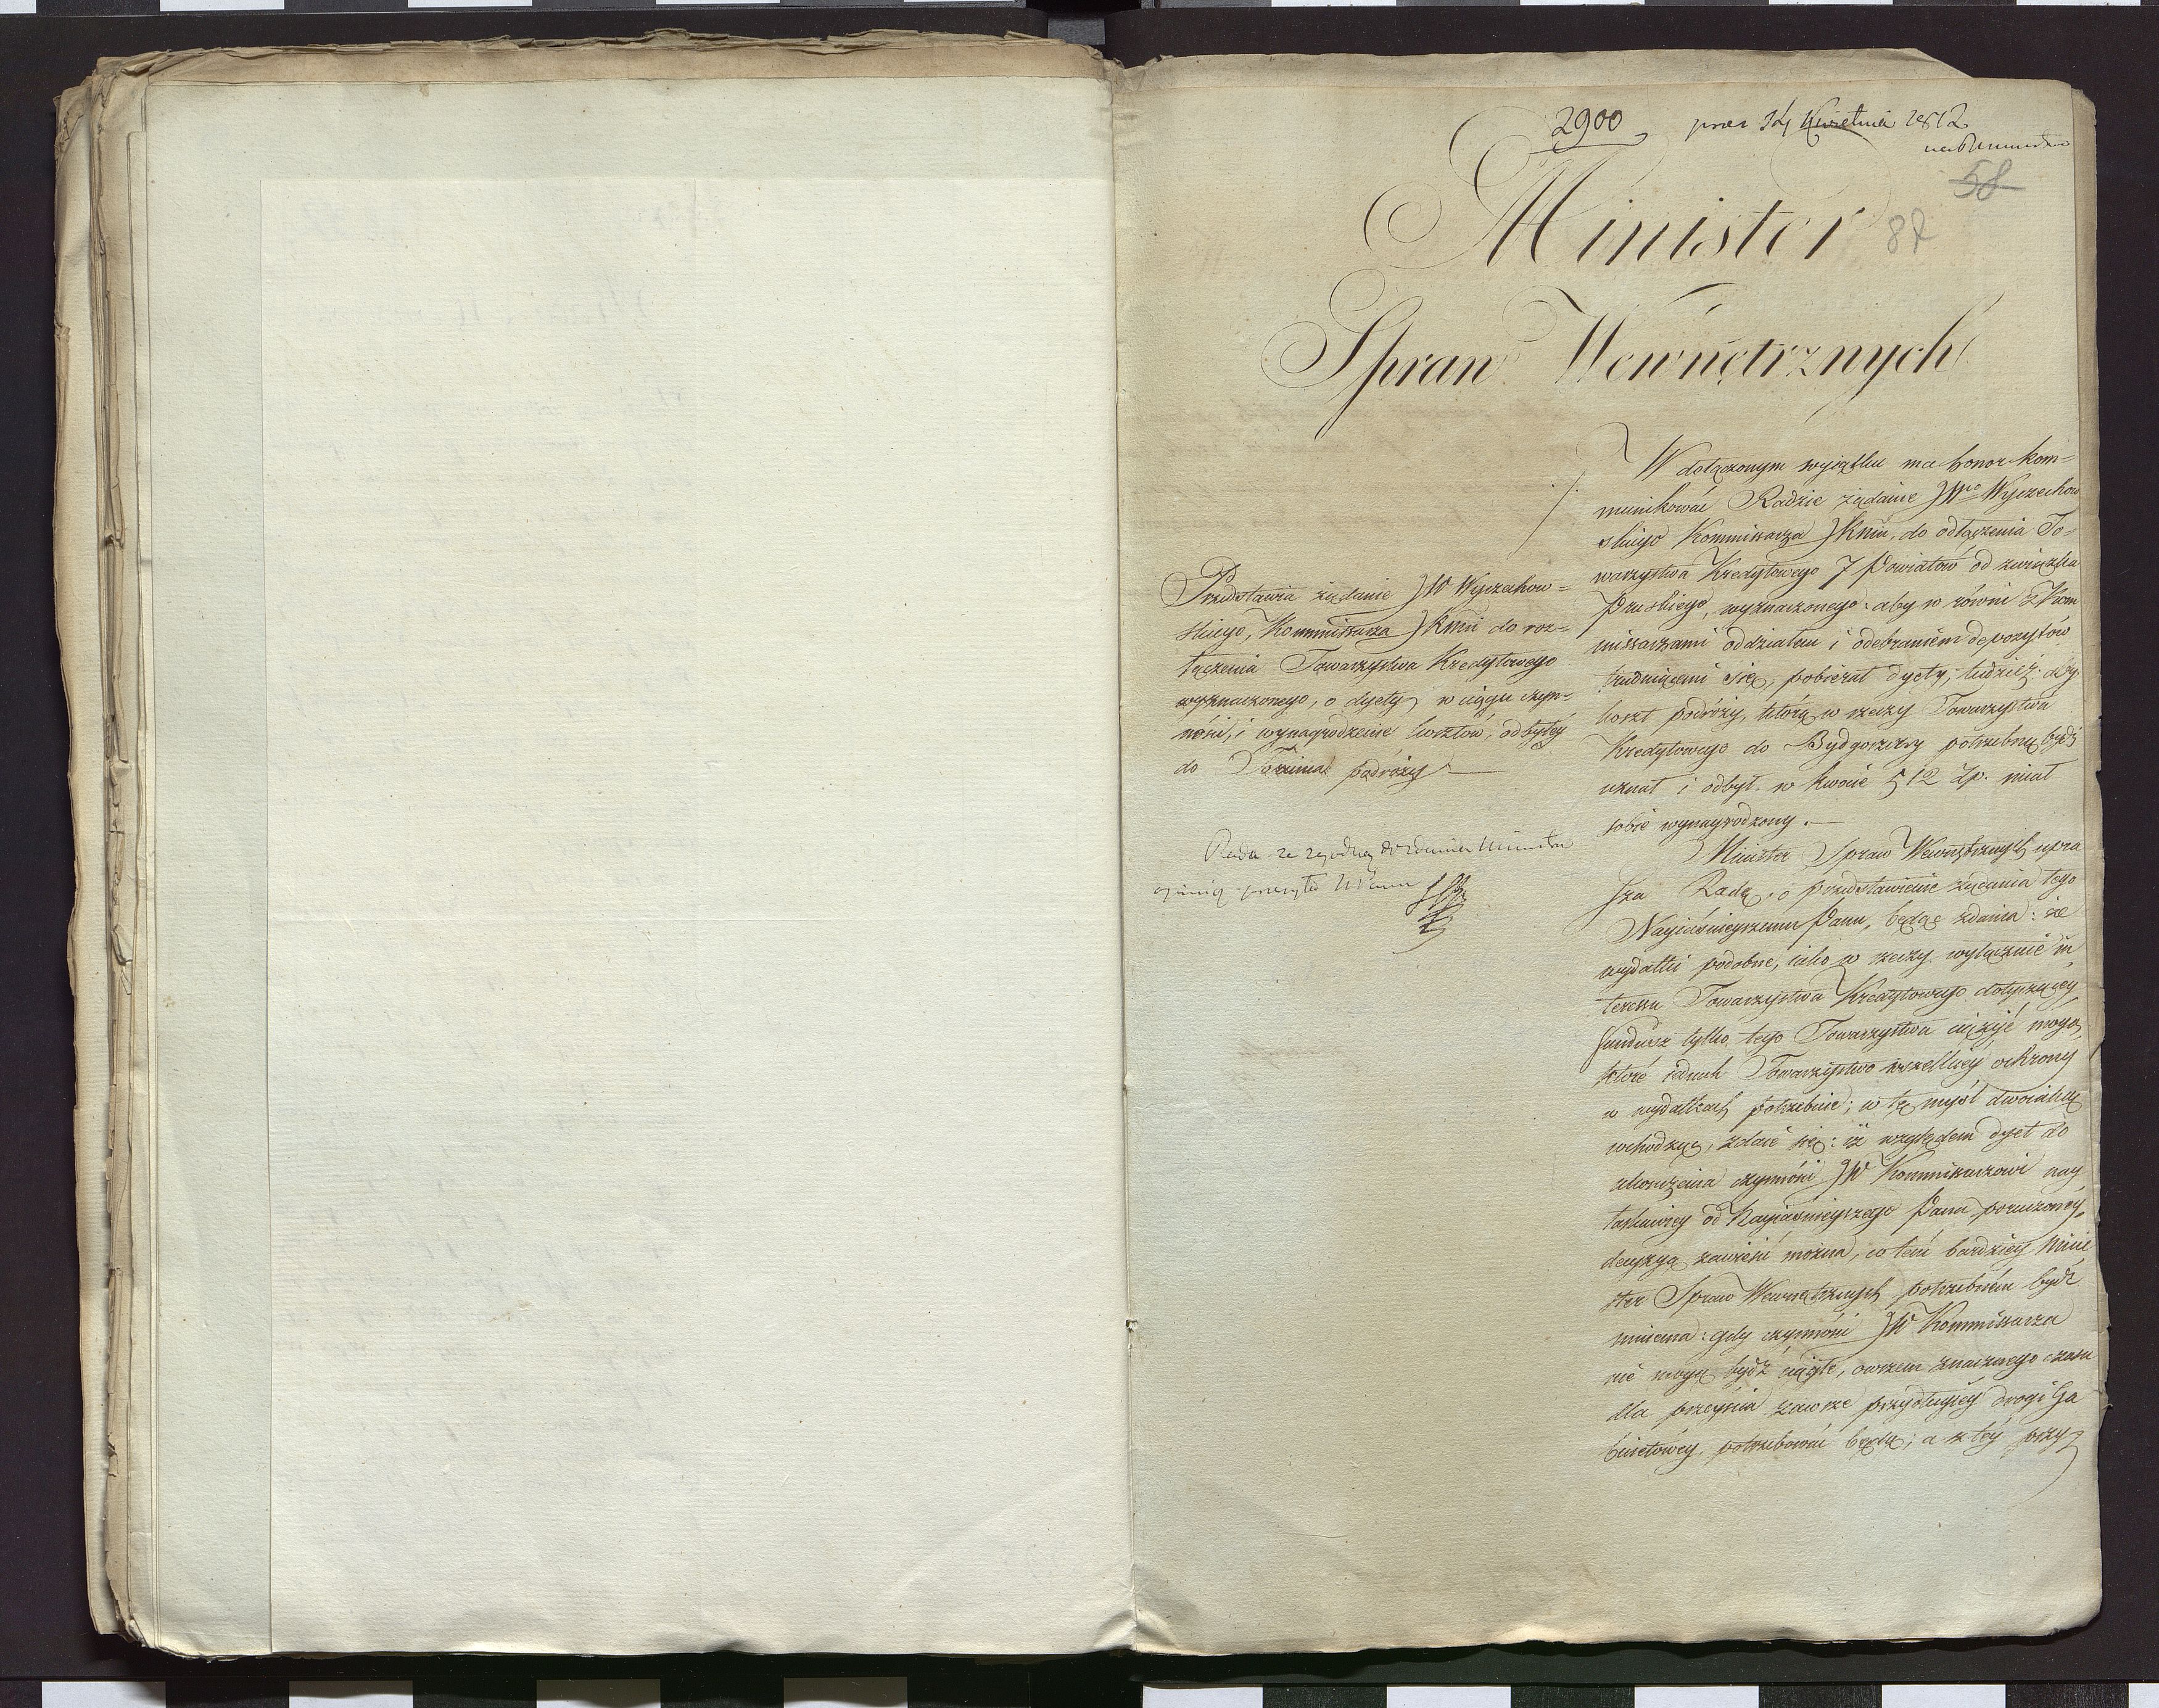 2900 prez 14 Kwietnia 1812
58
87
Minister
Spraw Wewnętrznych
Przedstawia żądanie JW Wyczechow=
skiego, Kommissarza JKMci do roz=
łączenia Towarzystwa Kredytowego
wyznaczonego, o dyety w ciągu czyn=
ności, i wynagrodzenie kosztów, odbytey
do Torunia podróży
Rada ze zgodną do zdania Ministra
opinią przesyła NPanu
W dołączonym wyiątku ma honor kom=
munikować Radzie żądanie JWgo Wyczechow
skiego Kommissarza JKMci, do odłączenia To=
warzystwa Kredytowego 7 Powiatów od związku
Pruskiego, wyznaczonego: aby w równi z Kom
missarzami oddziałem i odebraniem depozytów
trudniącemi się, pobierał dyety, tudzież: aby
koszt podróży, którą w rzeczy Towarzystwa
Kredytowego do Bydgoszczy potrzebną bydź
uznał i odbył, w kwocie 512 Zp. miał
sobie wynagrodzony.
Minister Spraw Wewnętrznych upra
sza Radę, o przedstawienie żądania tego
Nayiaśnieyszemu Panu, będąc zdania: że
wydatki podobne, iako w rzeczy wyłącznie in
teressu Towarzystwa Kredytowego dotyczącey,
fundusz tylko tego Towarzystwa ciążyć mogą,
które iednak Towarzystwo wszelkiey ochrony
w wydatkach potrzebuie; w tę myśl dwoiaką
wchodząc, zdaie się: iż względem dyet do
ukończenia czynności JW Kommissarzowi nay
łaskawiey od Nayiaśnieyszego Pana poruczoney,
decyzyą zawiesić można, co tem bardziey Mini
ster Spraw Wewnętrznych potrzebnem bydź
mniema: gdy czynności JW Kommissarza
nie mogą bydź ciągłe, owszem znacznego czasu
dla przeyścia zawsze przydłuższey drogi Ga
binetowey potrzebować będą; a z tey przy